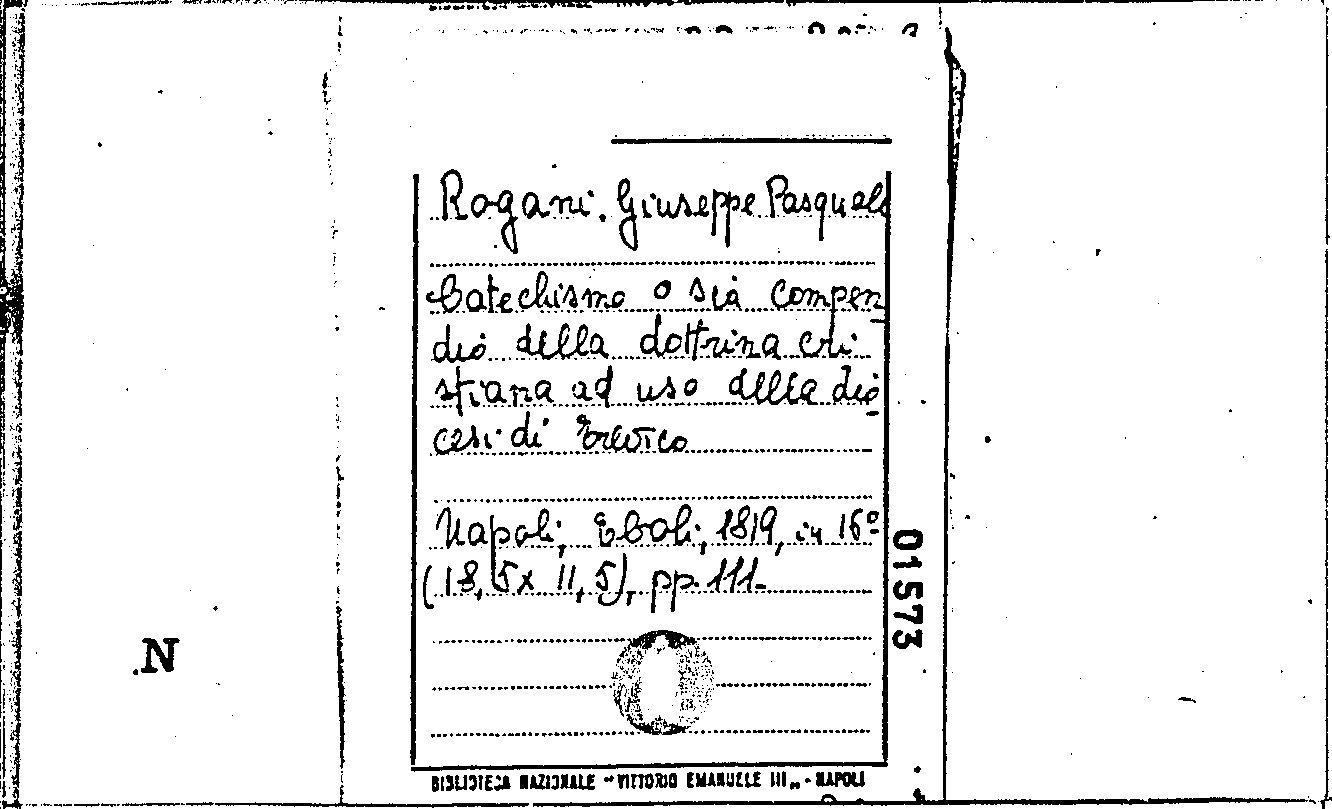 Rogani. Giuseppe Pasquale
Catechismo o sia compen
dio della dottrina cri
stiana ad uso della dio
cesi di Trevico
Napoli, Eboli, 1819, in 16º
(18,5x 11,5), pp. 111-
01573
N
BIBLIOTECA NAZIONALE "VITTORIO EMANUELE III„ - NAPOLI